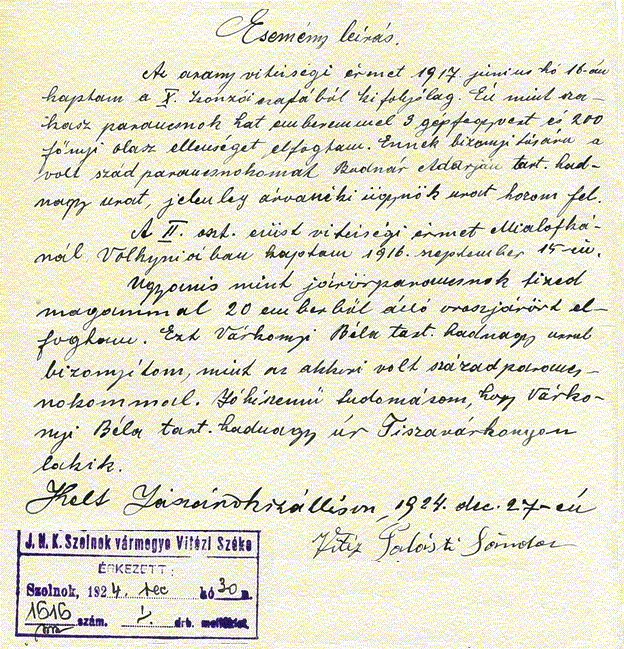 Esemény leírás.
Az arany vitézségi érmet 1917. június hó 16-án
kaptam a X. Isonzói csatából kifolyólag. Én mint sza-
kasz parancsnok hat emberemmel 3 gépfegyvert és 200
főnyi olasz ellenséget elfogtam. Ennek bizonyítására a
volt szád parancsnokomat Bodnár Adorján tart. had-
nagy urat, jelenleg árvaszéki ügynök urat hozom fel.
A II. oszt. ezüst vitézségi érmet Mialofká-
nál Volhyniában kaptam 1916. szeptember 15-én.
Ugyanis mint járőrparancsnok tized
magammal 20 emberből álló oroszjárőrt el-
fogtam. Ezt Várkonyi Béla tart. hadnagy úrral
bizonyítom, mint az akkori volt századparancs-
nokommal. Jóhiszemű tudomásom, hogy Várko-
nyi Béla tart. hadnagy úr Tiszavárkonyon
lakik.
Kelt Jászárokszálláson, 1924. dec. 27-én
Vitéz Palásti Sándor
J. N. K. Szolnok vármegye Vitézi Széke
ÉRKEZETT:
Szolnok, 1924. dec hó 30 n.
1616 szám. drb. melléklet.